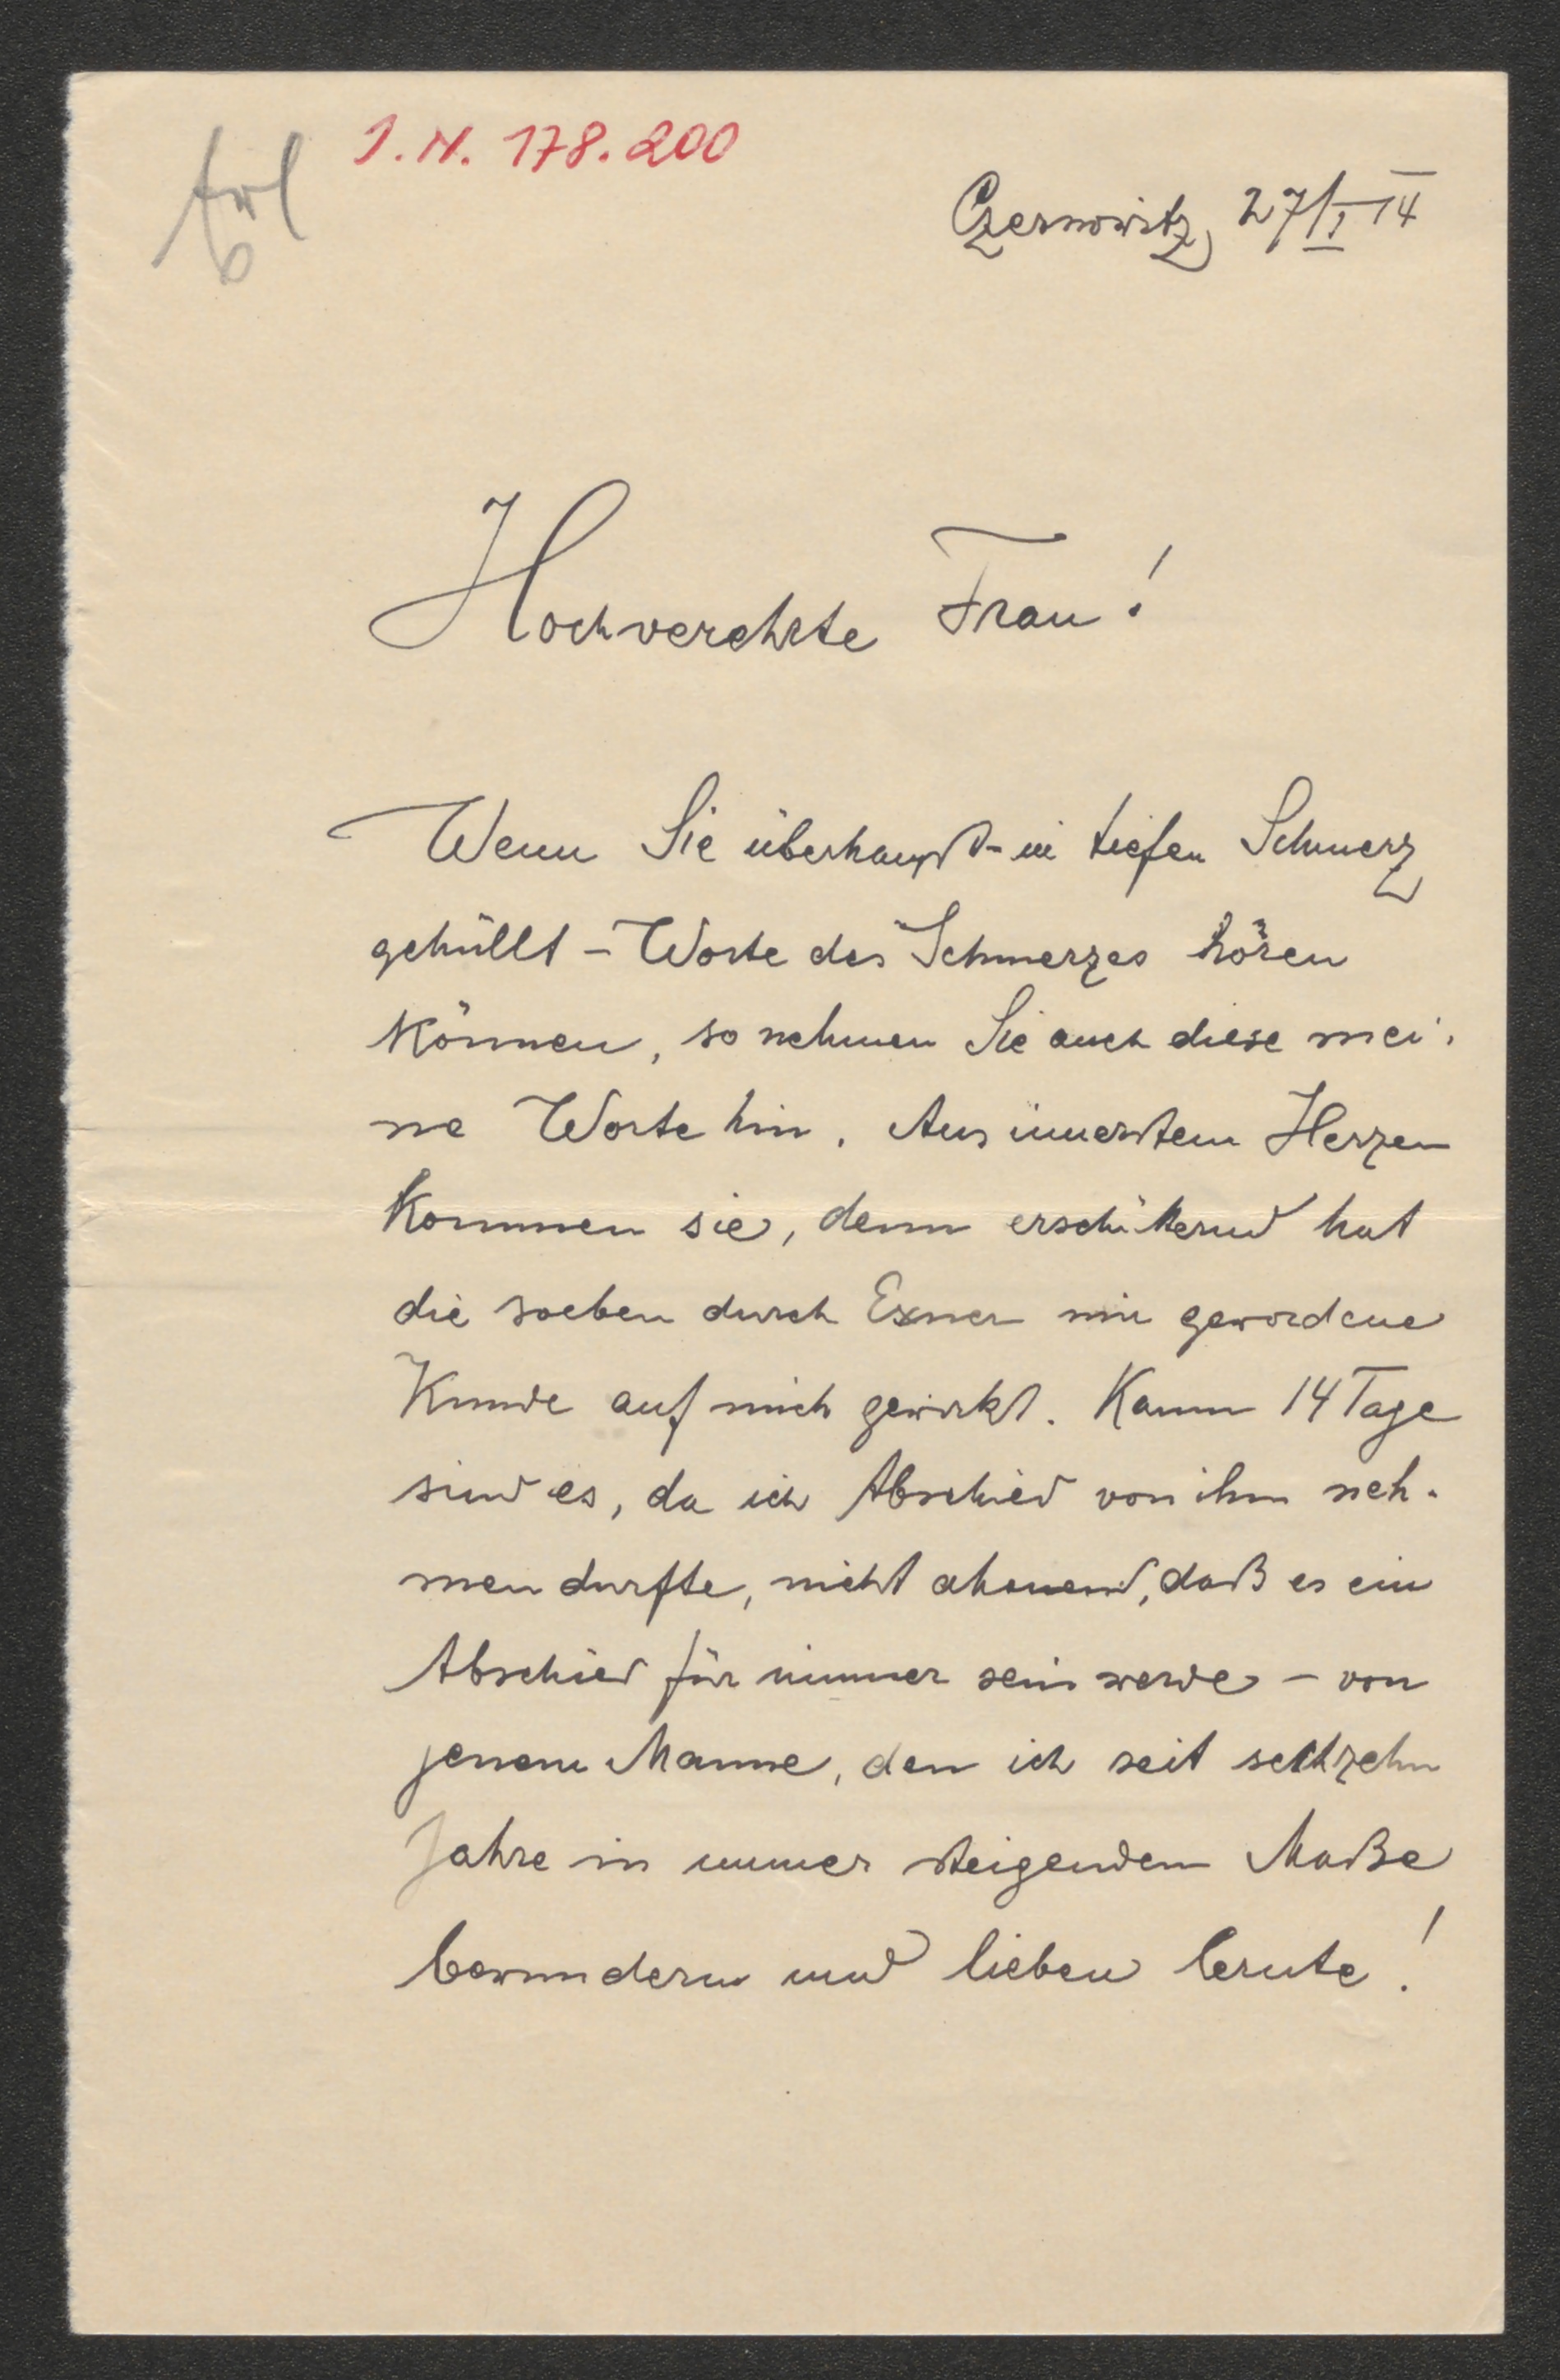 I.N. 178.200
Czernowitz, 27/I 14
Hochverehrte Frau!
Wenn Sie überhaupt - in tiefen Schmerz
gehüllt - Worte des Schmerzes hören
können, so nehmen Sie auch diese mei-
ne Worte hin. Aus innerstem Herzen
kommen sie, denn erschütternd hat
die soeben durch Exner mir gewordene
Kunde auf mich gewirkt. Kaum 14 Tage
sind es, da ich Abschied von ihm neh-
men durfte, nicht ahnend, daß es ein
Abschied für immer sein werde - von
jenem Manne, den ich seit sechzehn
Jahre in immer steigendem Maße
bewundern und lieben lernte!